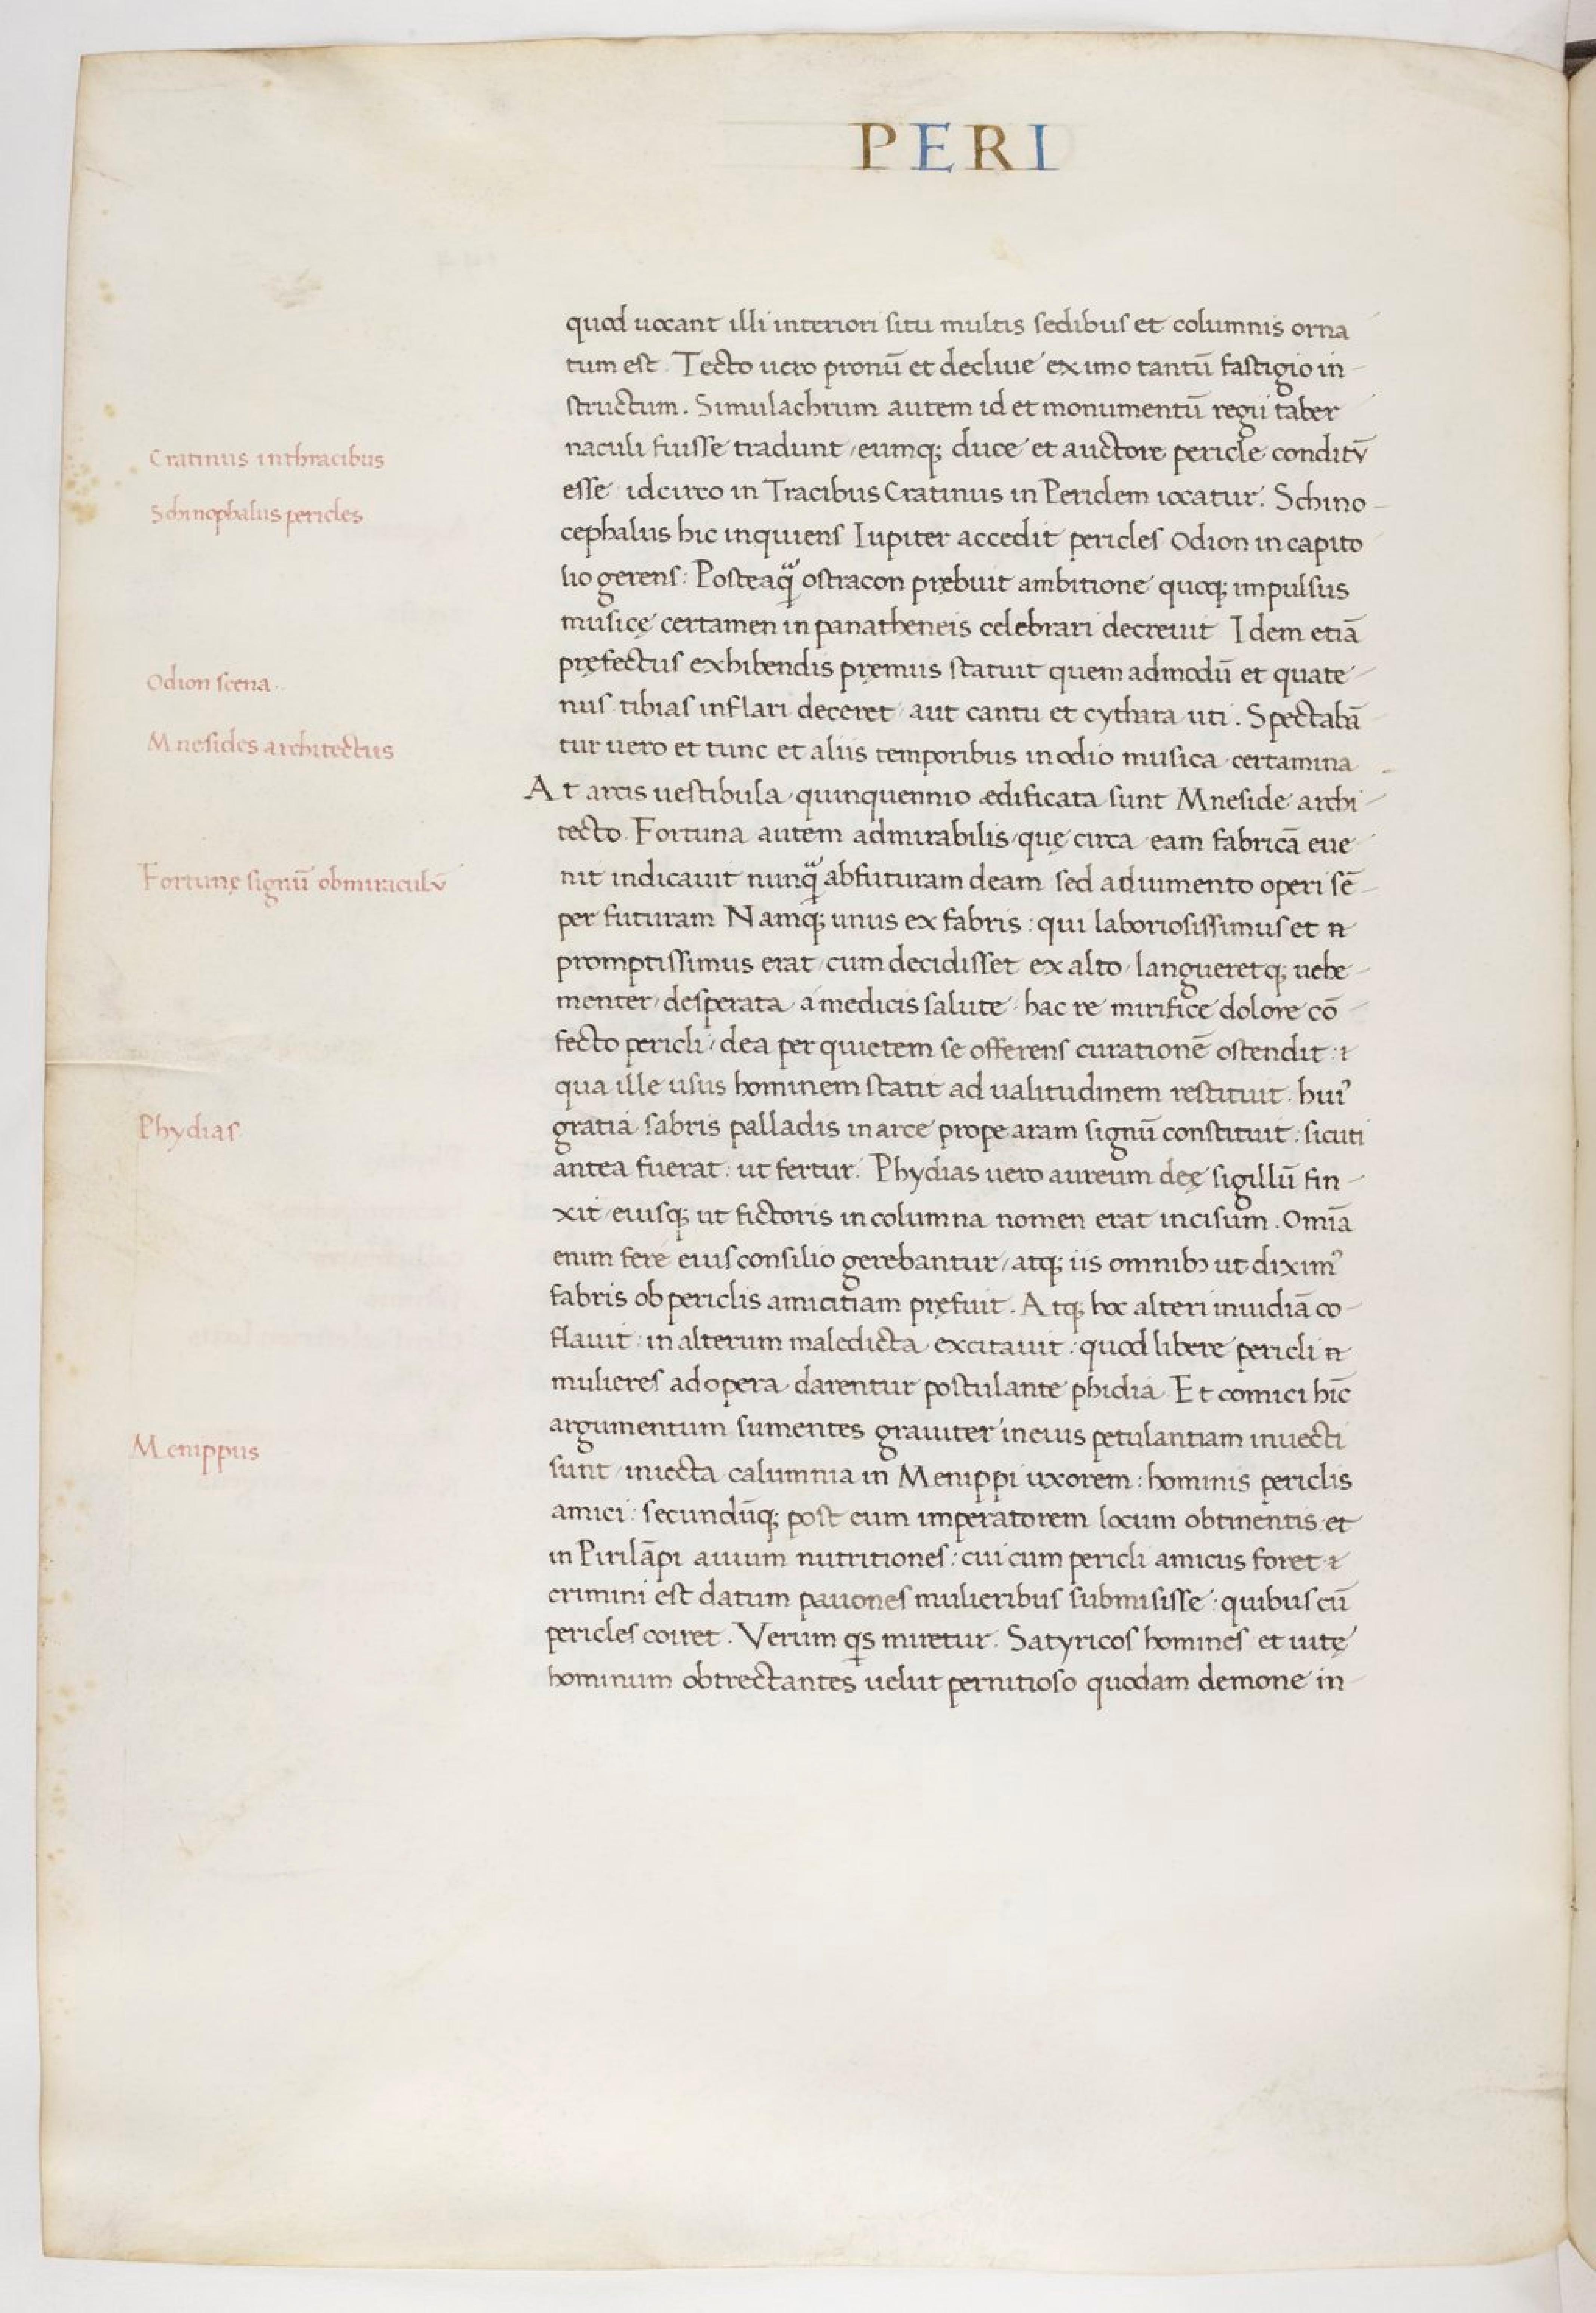 PERI
quod uocant illi interiori situ multis sedibus et columnis orna
tum est. Tecto uero pronū et decliue ex imo tantū fastigio in-
structum. Simulachrum autem id et monumentū regii taber
Cratinus in thracibus
naculi fuisse tradunt / eumq; duce et auctore pericle conditū
Schinophalus pericles
esse idcirco in Tracibus Cratinus in Periclem iocatur. Schino-
cephalus hic inquiens Iupiter accedit pericles Odion in capito
lio gerens: Posteaq̃ ostracon prębuit ambitione quoq; impulsus
musicę certamen in panatheneis celebrari decreuit Idem etiā
Odion scena.
pręfectus exhibendis pręmiis statuit quem admodū et quate-
nus tibias inflari deceret / aut cantu et cythara uti. Spectabā
Mnesides architectus
tur uero et tunc et aliis temporibus in odio musica certamina
At arcis uestibula quinquennio ædificata sunt Mneside archi-
tecto. Fortuna autem admirabilis / quę circa eam fabricā eue
Fortunę signū ob miraculū
nit indicauit nunq̃ abfuturam deam sed adiumento operi sē-
per futuram Namq; unus ex fabris: qui laboriosissimus et n̄
promptissimus erat / cum decidisset ex alto / langueretq; uehe-
menter / desperata a medicis salute hac re mirifice dolore cō-
fecto pericli / dea per quietem se offerens curationē ostendit: ⁊
qua ille usus hominem statit ad ualitudinem restituit. huiꝰ
Phydias
gratia sabris palladis in arce prope aram signū constituit: sicuti
antea fuerat: ut fertur. Phydias uero aureum deę sigillū fin-
xit / eiusq; ut fictoris in columna nomen erat incisum. Omīa
enim fere eius consilio gerebantur / atq; iis omnibꝫ ut diximꝰ
fabris ob periclis amicitiam pręfuit. Atq; hoc alteri inuidiā co-
flauit: in alterum maledicta excitauit: quod libere pericli n̄
mulieres ad opera darentur postulante phidia. Et comici hīc
argumentum sumentes grauiter in eius petulantiam inuecti
Menippus
sunt / iniecta calumnia in Menippi uxorem: hominis periclis
amici: secundūq; post eum imperatorem locum obtinentis et
in Pirilāpi auium nutritiones: cui cum pericli amicus foret ⁊
crimini est datum pauones mulieribus submisisse: quibus cū
pericles coiret. Verum qs miretur. Satyricos homines et uitę
hominum obtrectantes uelut pernitioso quodam demone in-